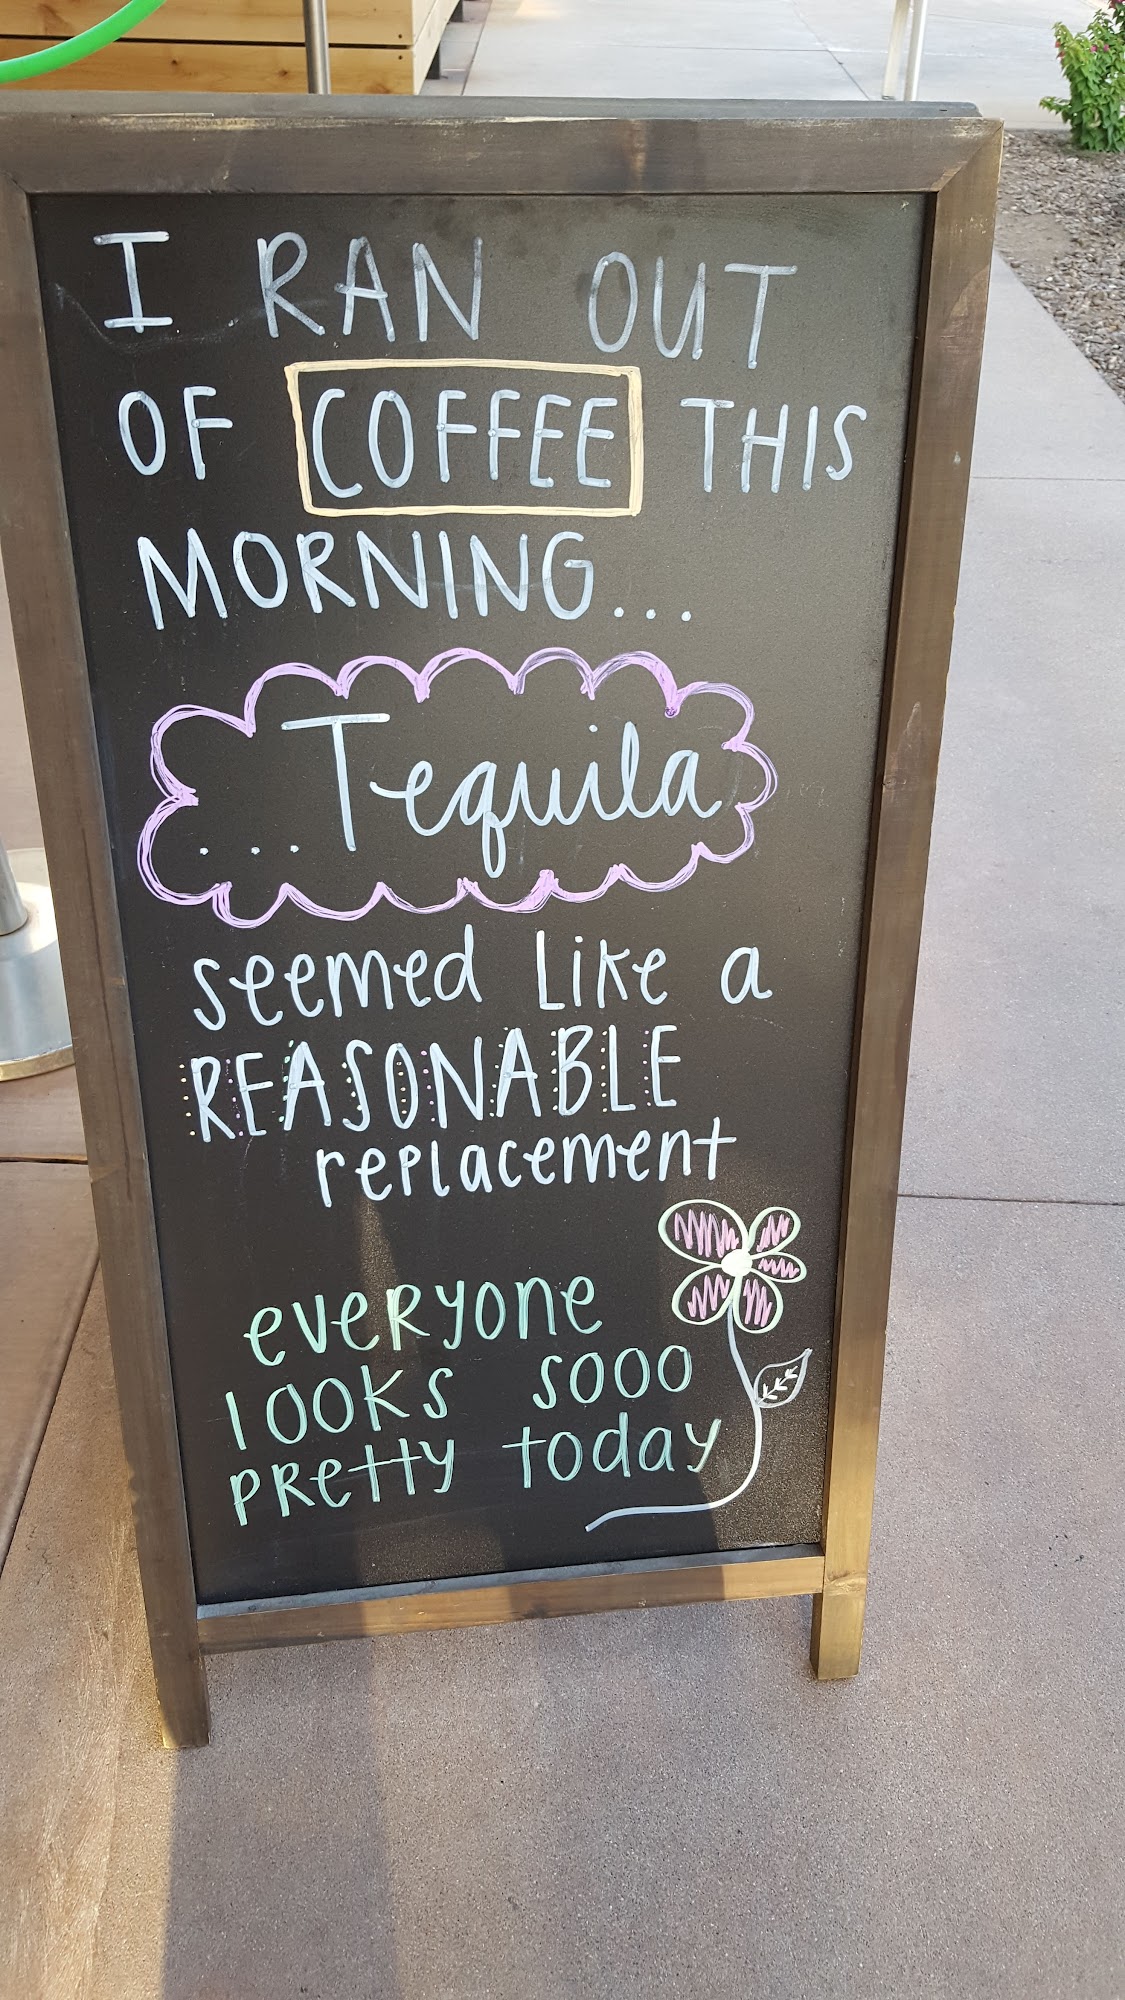 I RAN OUT
OF COFFEE THIS
MORNING...
...Tequila
seemed like a
REASONABLE
replacement
everyone
looks sooo
pretty today